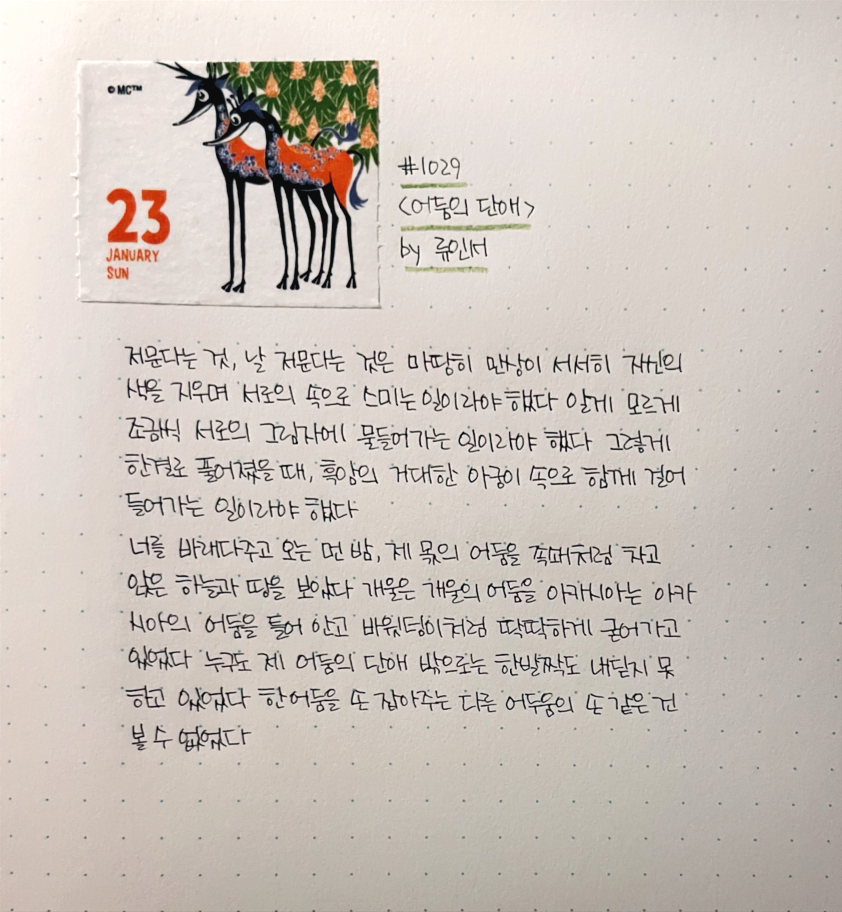 © MC™
23
JANUARY
SUN
#1029
<어둠의 단애>
by 류인서
저문다는 것, 날 저문다는 것은 마땅히 만상이 서서히 자신의
색을 지우며 서로의 속으로 스미는 일이라야 했다 알게 모르게
조금씩 서로의 그림자에 물들어가는 일이라야 했다 그렇게
한결로 풀어졌을 때, 흑암의 거대한 아궁이 속으로 함께 걸어
들어가는 일이라야 했다
너를 바래다주고 오는 먼 밤, 제 몫의 어둠을 족쇄처럼 차고
앉은 하늘과 땅을 보았다 개울은 개울의 어둠을 아카시아는 아카
시아의 어둠을 틀어 안고 바윗덩이처럼 딱딱하게 굳어가고
있었다 누구도 제 어둠의 단애 밖으로는 한발짝도 내딛지 못
하고 있었다 한 어둠을 손 잡아주는 다른 어두움의 손 같은 건
볼 수 없었다